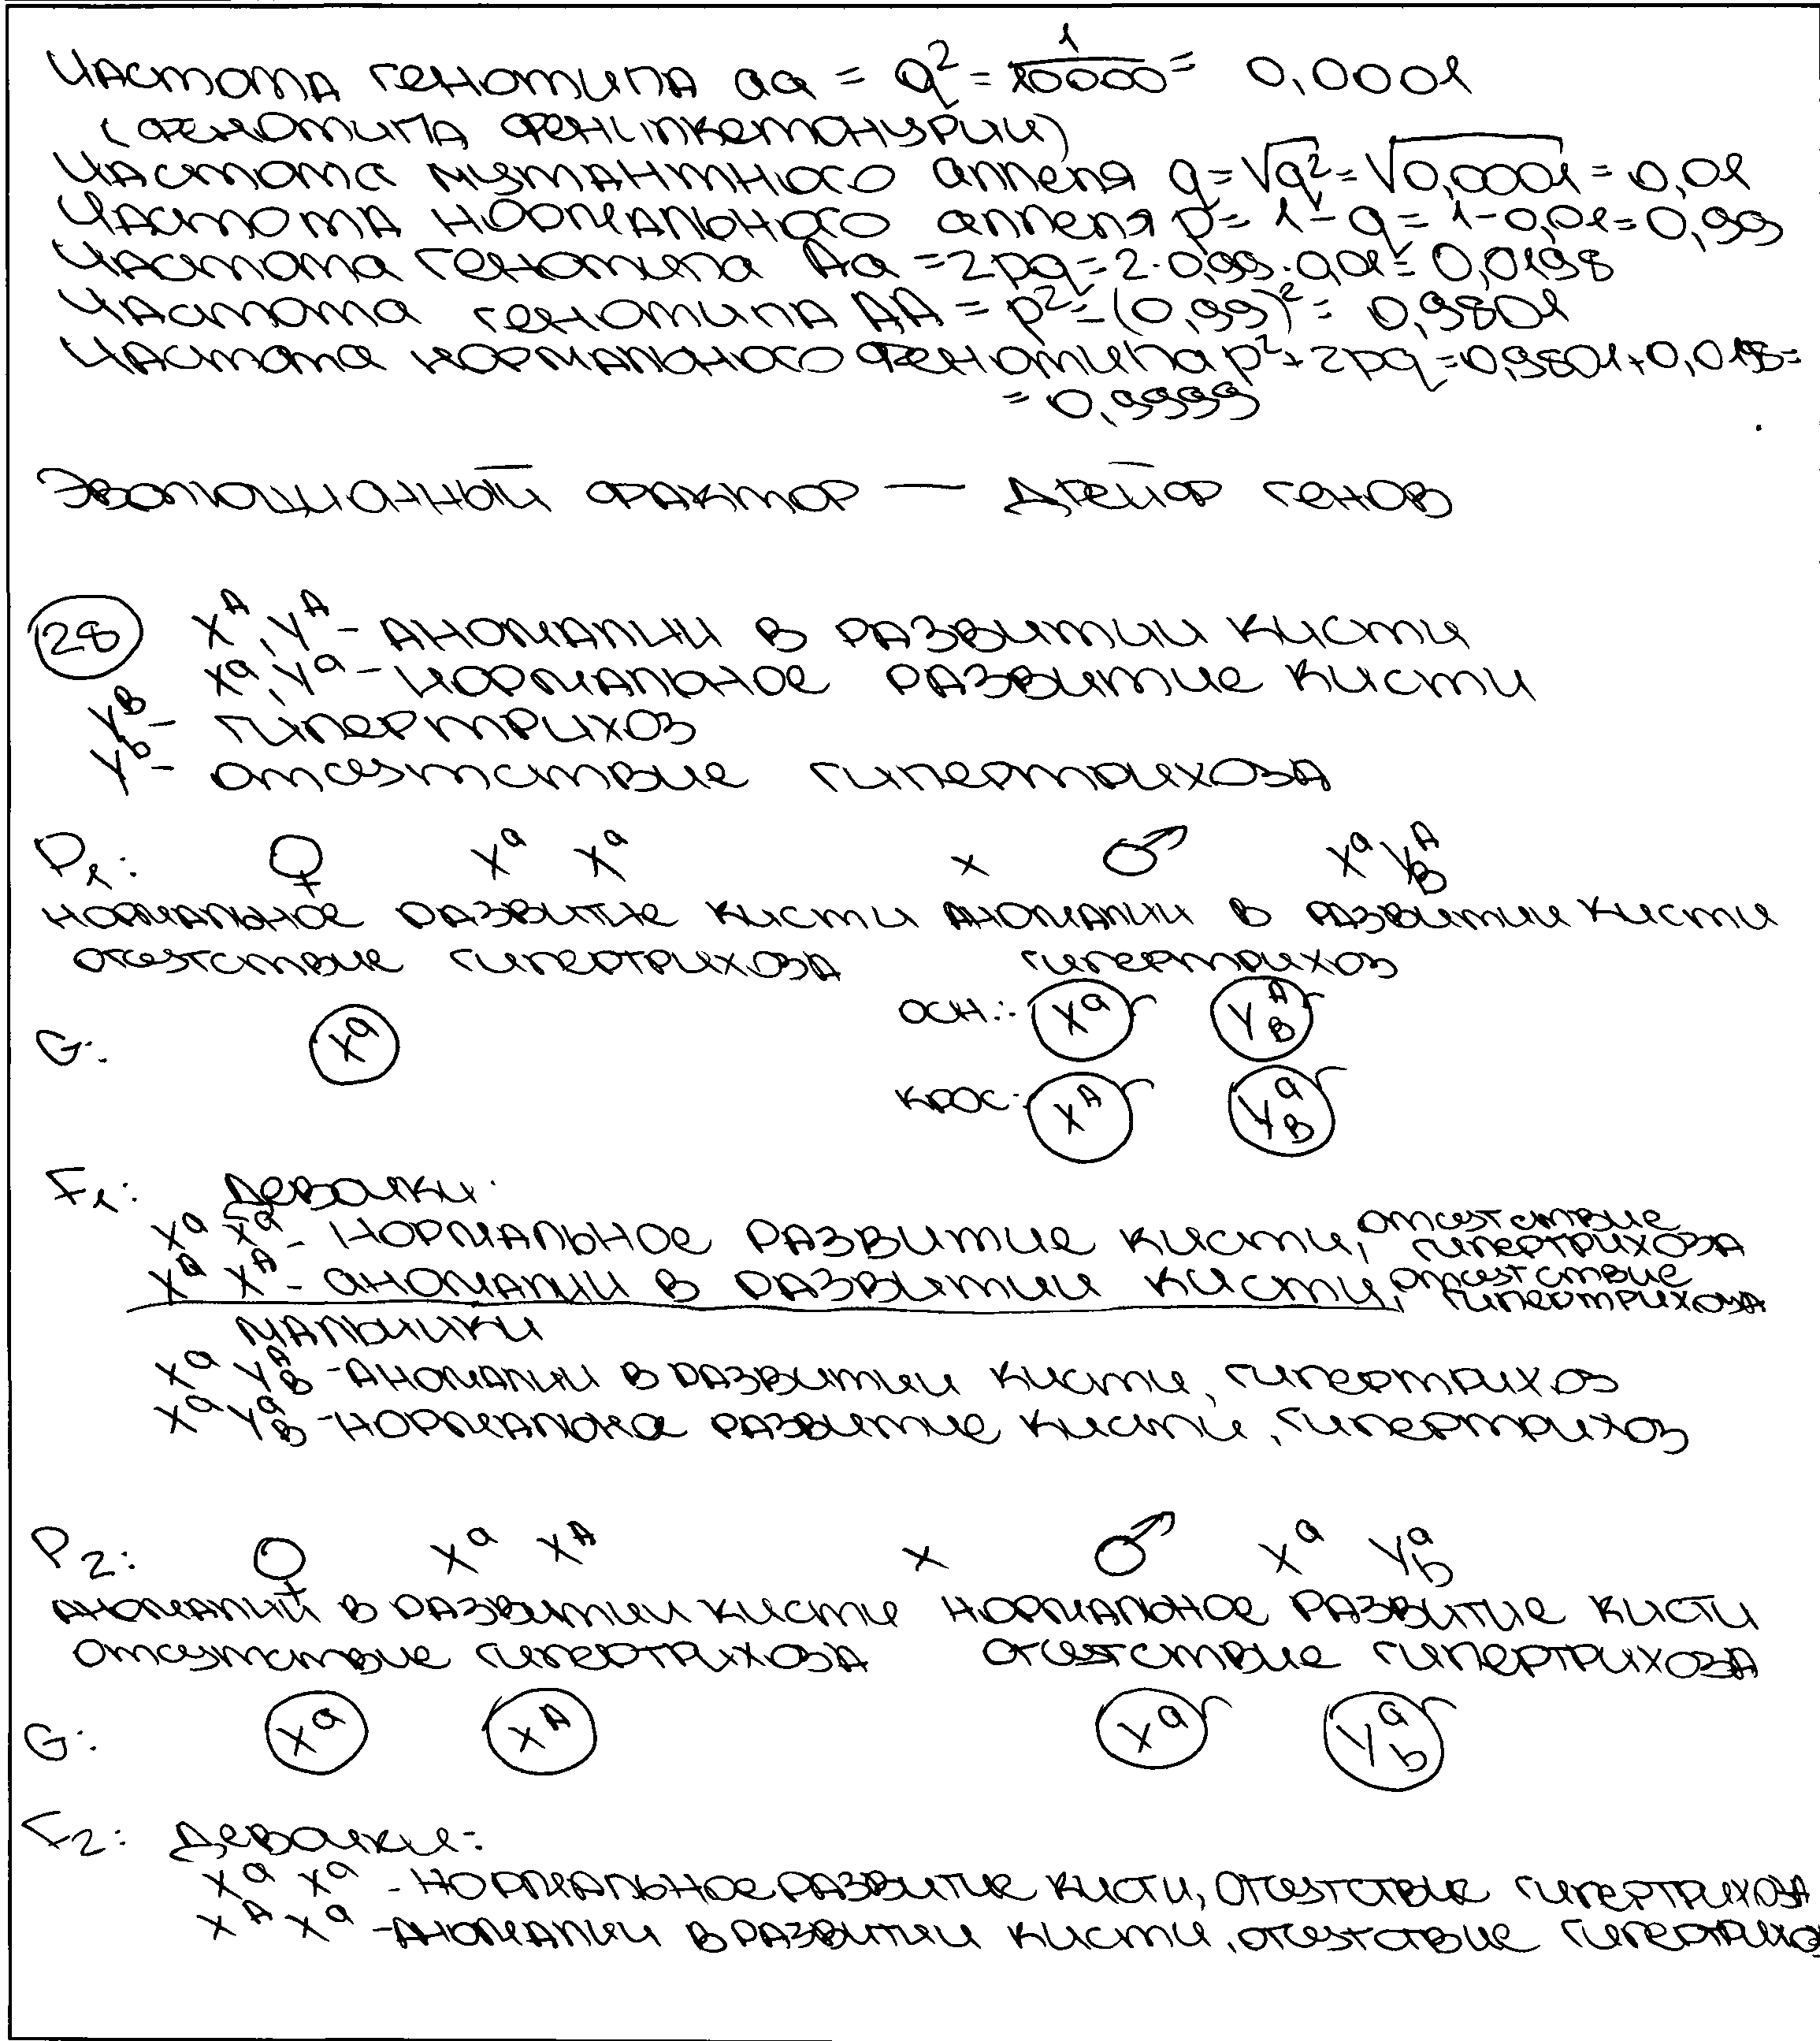 Частота генотипа aa = q² = 1/10000 = 0,0001
(фенотипа фенилкетонурии)
Частота мутантного аллеля q = √q² = √0,0001 = 0,01
Частота нормального аллеля p = 1 - q = 1 - 0,01 = 0,99
Частота генотипа Aa = 2pq = 2·0,99·0,01 = 0,0198
Частота генотипа AA = p² = (0,99)² = 0,9801
Частота нормального фенотипа p² + 2pq = 0,9801 + 0,0198 =
= 0,9999
Эволюционный фактор — дрейф генов
28 X^A, Y^A - аномалии в развитии кисти
X^a, Y^a - нормальное развитие кисти
Y^B - гипертрихоз
Y^b - отсутствие гипертрихоза
P₁: ♀ X^a X^a × ♂ X^a Y^A_B
нормальное развитие кисти аномалии в развитии кисти
отсутствие гипертрихоза гипертрихоз
G: X^a осн.: X^a Y^A_B
крос: X^A Y^a_B
F₁: Девочки:
X^a X^a - нормальное развитие кисти, отсутствие гипертрихоза
X^a X^A - аномалии в развитии кисти, отсутствие гипертрихоза
мальчики
X^a Y^A_B - аномалии в развитии кисти, гипертрихоз
X^a Y^a_B - нормальное развитие кисти, гипертрихоз
P₂: ♀ X^a X^A × ♂ X^a Y^a_b
аномалии в развитии кисти нормальное развитие кисти
отсутствие гипертрихоза отсутствие гипертрихоза
G: X^a X^A X^a Y^a_b
F₂: Девочки:
X^a X^a - нормальное развитие кисти, отсутствие гипертрихоза
X^A X^a - аномалии в развитии кисти, отсутствие гипертрихоз